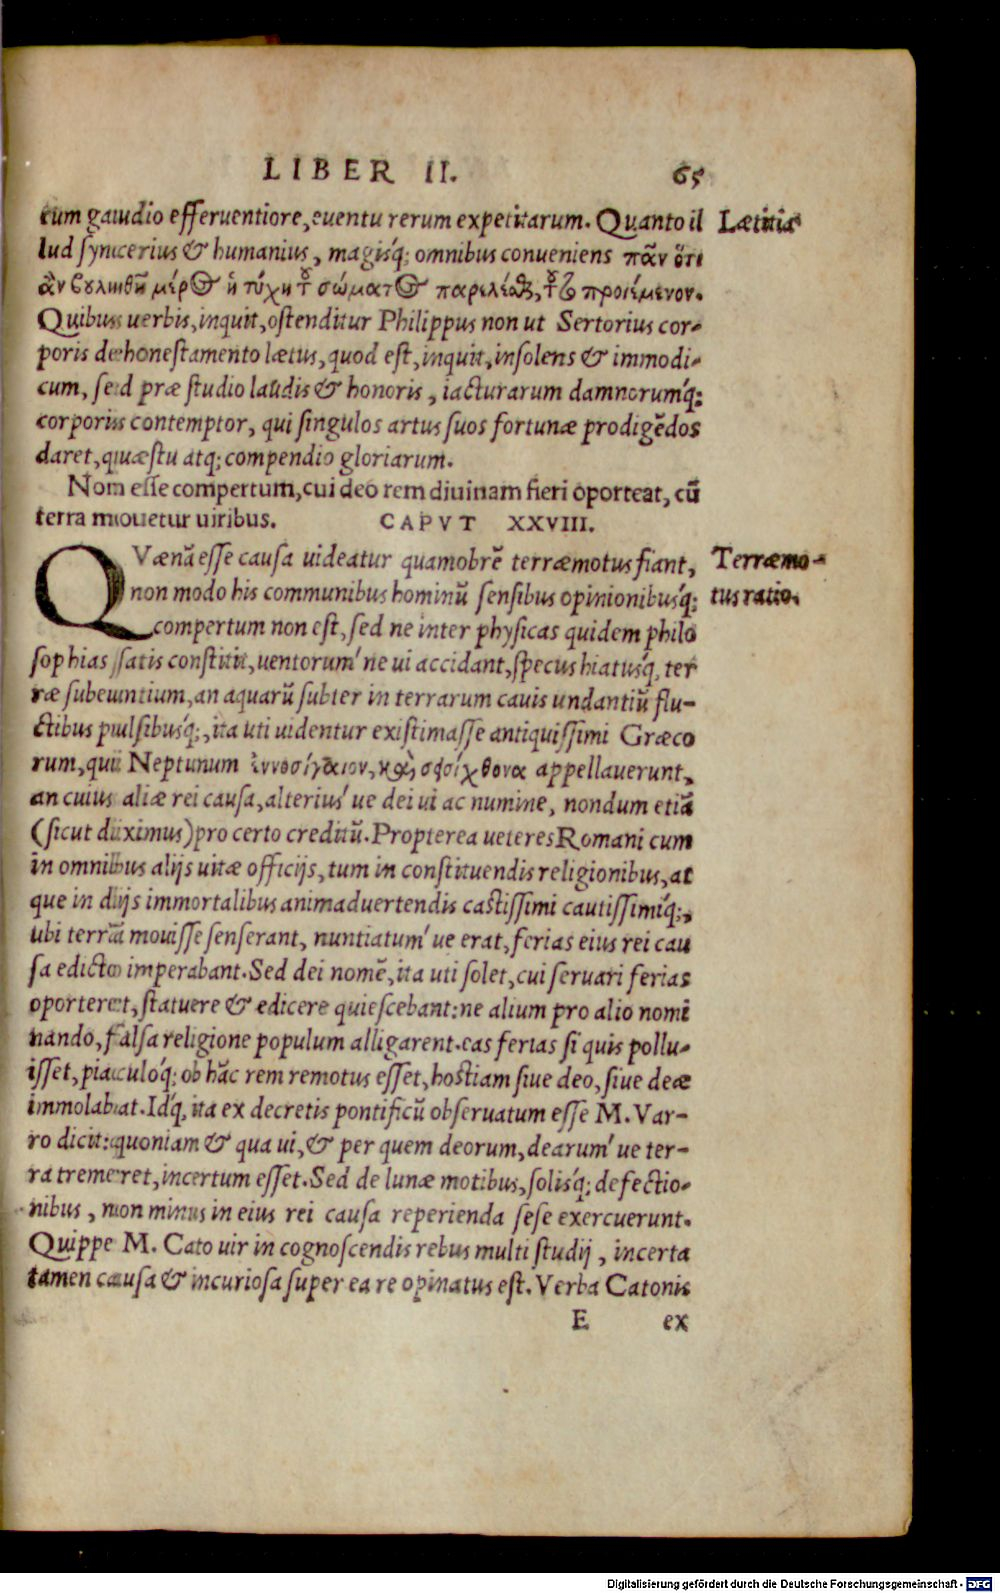 LIBER II. 65
cum gaudio efferuentiore, euentu rerum expetitarum. Quanto il
Lætitia
lud syncerius & humanius, magisq́; omnibus conueniens πᾶν ὅτι
ἂν βουληθῇ μέρος ἡ τύχη τοῦ σώματος παρελέσθαι, τοῦτο προϊέμενον.
Quibus uerbis, inquit, ostenditur Philippus non ut Sertorius cor-
poris dehonestamento lætus, quod est, inquit, insolens & immodi-
cum, sed præ studio laudis & honoris, iacturarum damnorumq́;
corporis contemptor, qui singulos artus suos fortunæ prodigẽdos
daret, quæstu atq; compendio gloriarum.
Non esse compertum, cui deo rem diuinam fieri oporteat, cũ
terra mouetur uiribus. CAPVT XXVIII.
QVænã esse causa uideatur quamobrẽ terræmotus fiant,
Terræmo-
non modo his communibus hominũ sensibus opinionibusq́;
tus ratio.
compertum non est, sed ne inter physicas quidem philo
sophias satis constitit, uentorum' ne ui accidant, specus hiatusq́, ter
ræ subeuntium, an aquarũ subter in terrarum cauis undantiũ flu-
ctibus pulsibusq́;, ita uti uidentur existimasse antiquissimi Græco
rum, qui Neptunum ἐννοσίγαιον, καὶ σεισίχθονα appellauerunt,
an cuius aliæ rei causa, alterius' ue dei ui ac numine, nondum etiã
(sicut diximus) pro certo creditũ. Propterea ueteres Romani cum
in omnibus alijs uitæ officijs, tum in constituendis religionibus, at
que in dijs immortalibus animaduertendis castissimi cautissimiq́;,
ubi terrã mouisse senserant, nuntiatum' ue erat, ferias eius rei cau
sa edicto imperabant. Sed dei nomẽ, ita uti solet, cui seruari ferias
oporteret, statuere & edicere quiescebant: ne alium pro alio nomi
nando, falsa religione populum alligarent. eas ferias si quis pollu-
isset, piaculoq́; ob hãc rem remotus esset, hostiam siue deo, siue deæ
immolabat. Idq́, ita ex decretis pontificũ obseruatum esse M. Var-
ro dicit: quoniam & qua ui, & per quem deorum, dearum' ue ter-
ra tremeret, incertum esset. Sed de lunæ motibus, solisq́; defectio-
nibus, non minus in eius rei causa reperienda sese exercuerunt.
Quippe M. Cato uir in cognoscendis rebus multi studij, incerta
tamen causa & incuriosa super ea re opinatus est. Verba Catonis
E ex
Digitalisierung gefördert durch die Deutsche Forschungsgemeinschaft - DFG